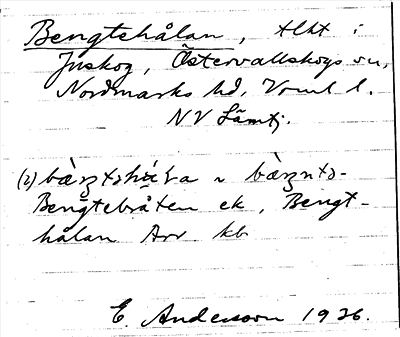 Bengtehålan, tlht i
Juskog, Östervallskogs sn,
Nordmarks hd, Vrml. l.
NV Lämtj.
(2) bæ̀ŋtəhɷ́ɽa ~ bæ̀ŋntə-
Bengtebråten ek, Bengt-
hålan Arv kb
E. Andersson 1926.